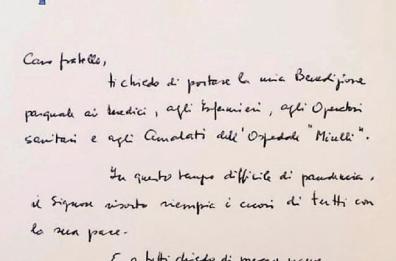 Caro fratello,
ti chiedo di portare la mia Benedizione
pasquale ai medici, agli Infermieri, agli Operatori
sanitari e agli Ammalati dell'Ospedale "Miulli".
In questo tempo difficile di pandemia,
il Signore risorto riempia i cuori di tutti con
la sua pace.
E a tutti chiedo di